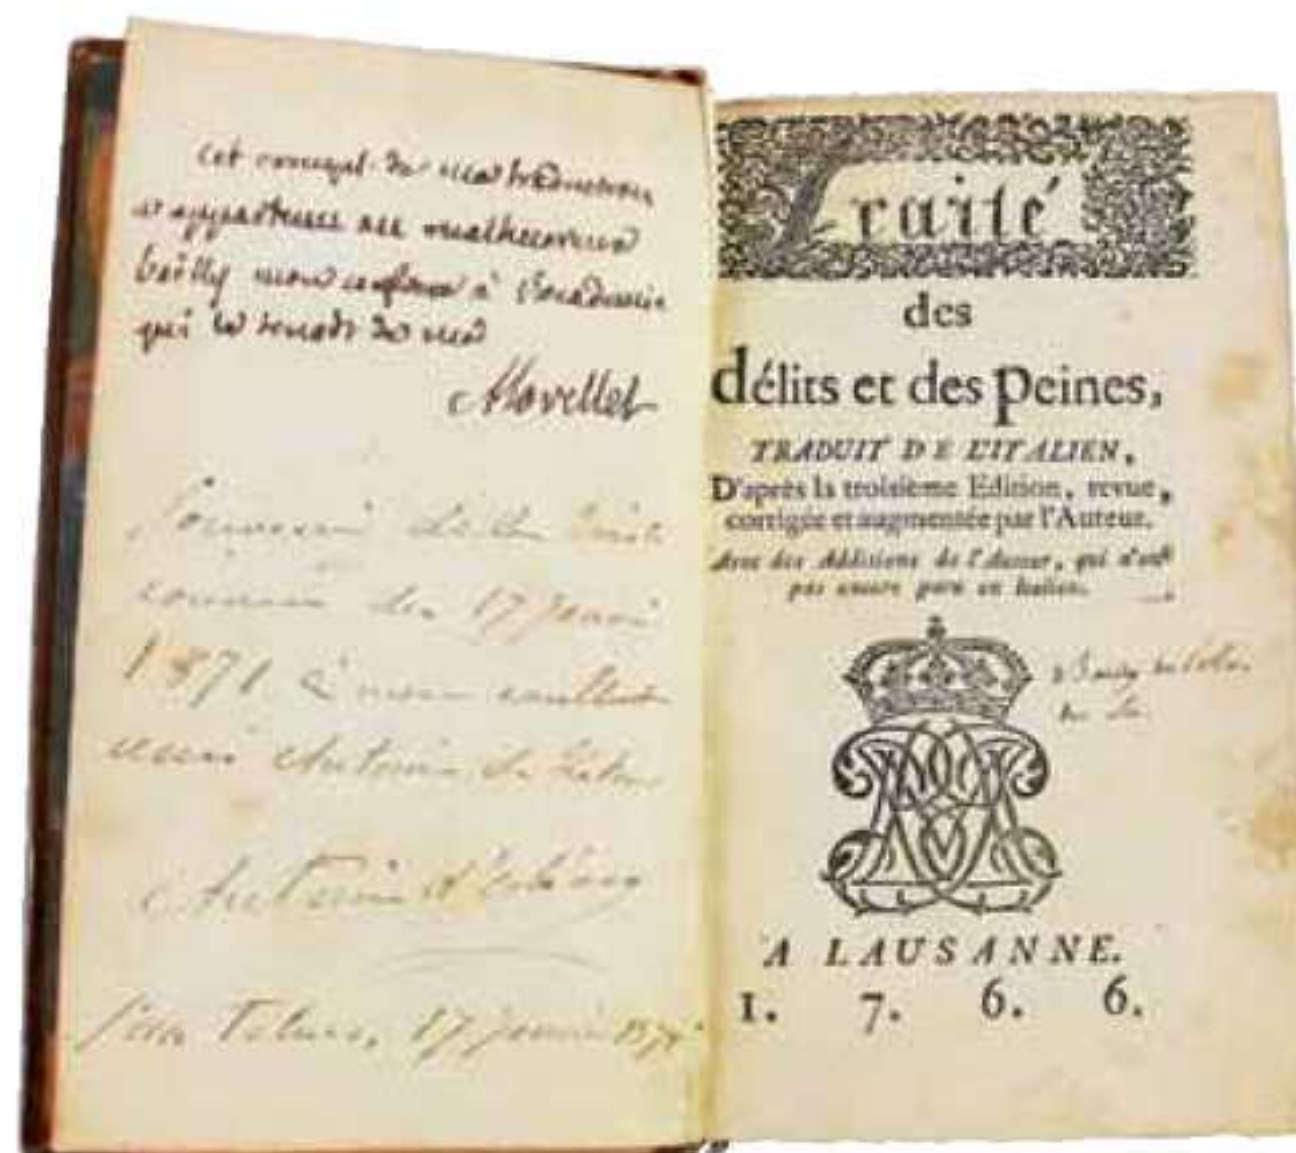 Cet exempl. de ma traduction
a appartenu au malheureux
bailly mon confrere à l'academie
qui la tenait de moi
Morellet
Souvenir
17 janvi
1871 à mon
ami Antoine
Antoine d'
17 janvier
Traité
des
délits et des peines,
TRADUIT DE L'ITALIEN,
D'après la troisième Edition, revue,
corrigée et augmentée par l'Auteur.
Avec des Additions de l'Auteur, qui n'ont
pas encore paru en Italien.
A LAUSANNE.
1. 7. 6. 6.